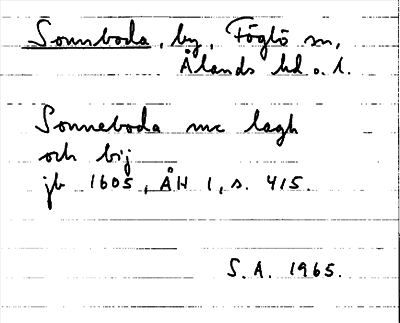 Sonnboda, by, Föglö sn,
Ålands hd o. l.
Sonneboda mc lagh
och bij
jb 1605, ÅH 1, s. 415.
S. A. 1965.